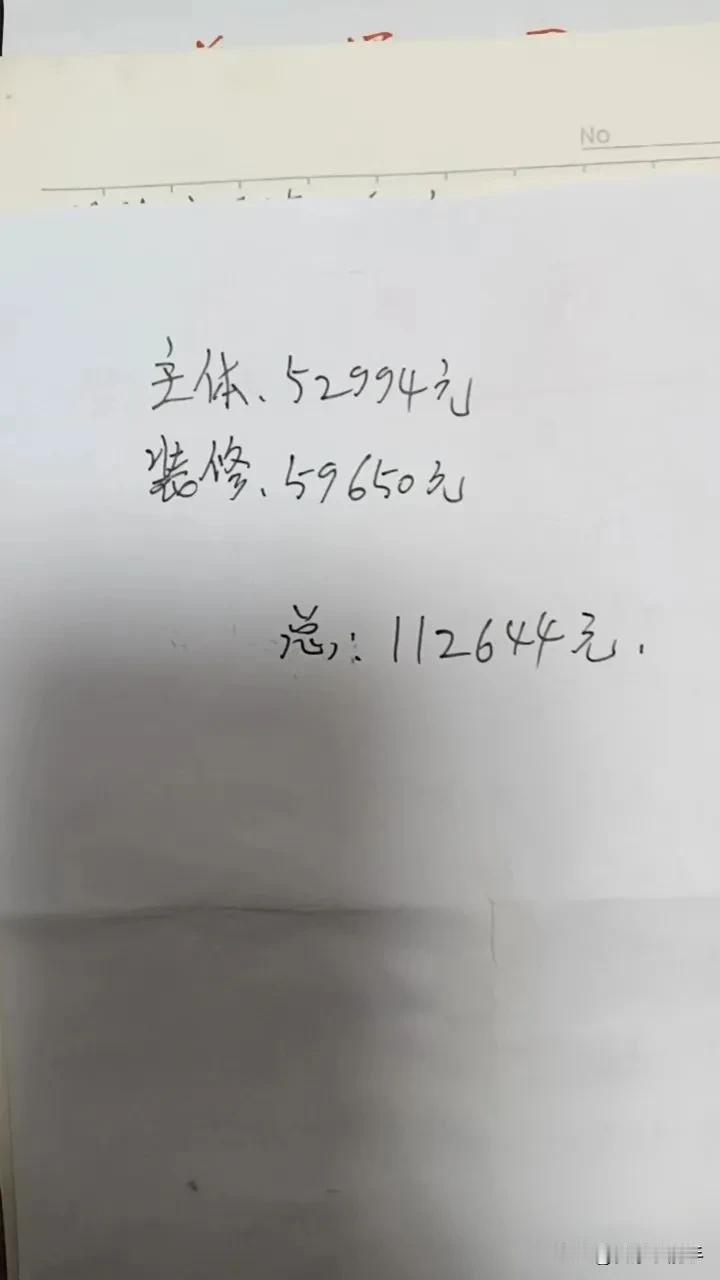 No
主体、52994元
装修、59650元
总:112644元.